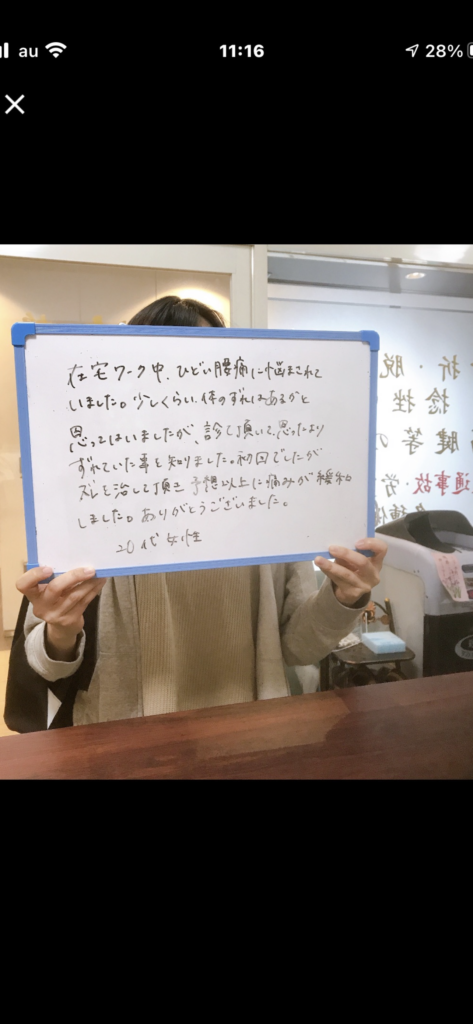 au
11:16
28%
在宅ワーク中、ひどい腰痛に悩まされて
いました。少しくらい体のずれはあるかと
思ってはいましたが、診て頂いて、思ったより
ずれていた事を知りました。初回でしたが
ズレを治して頂き予想以上に痛みが緩和
しました。ありがとうございました。
20代女性
折・脱
捻挫
腱等の
通事故・労